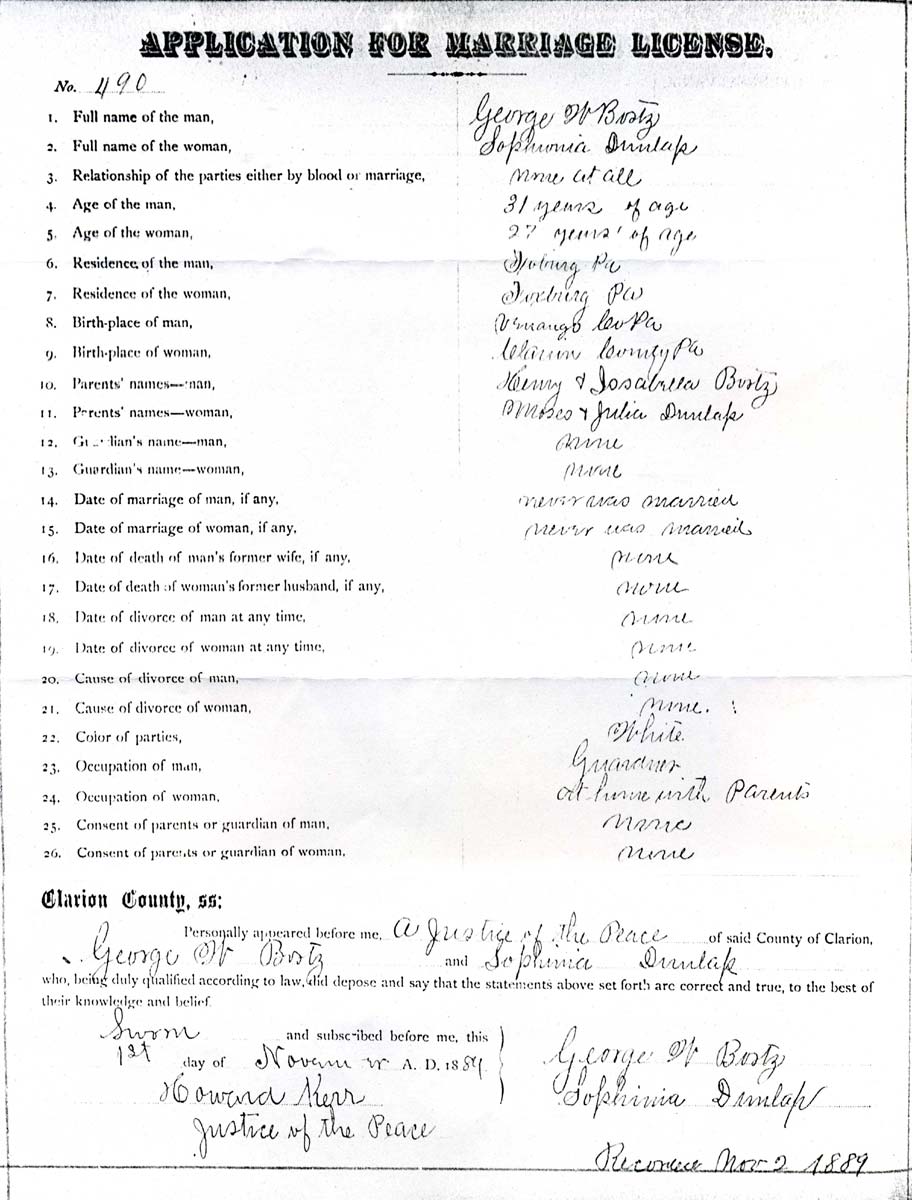 APPLICATION FOR MARRIAGE LICENSE.
No. 490
1. Full name of the man, George W Bostz
2. Full name of the woman, Sophronia Dunlap
3. Relationship of the parties either by blood or marriage, none at all
4. Age of the man, 31 years of age
5. Age of the woman, 27 years of age
6. Residence of the man, Foxburg Pa
7. Residence of the woman, Foxburg Pa
8. Birth-place of man, Venango Co Pa
9. Birth-place of woman, Clarion County Pa
10. Parents' names—man, Henry & Issabella Bostz
11. Parents' names—woman, Moses & Julia Dunlap
12. Guardian's name—man, none
13. Guardian's name—woman, none
14. Date of marriage of man, if any, never was married
15. Date of marriage of woman, if any, never was married
16. Date of death of man's former wife, if any, none
17. Date of death of woman's former husband, if any, none
18. Date of divorce of man at any time, none
19. Date of divorce of woman at any time, none
20. Cause of divorce of man, none
21. Cause of divorce of woman, none.
22. Color of parties, White
23. Occupation of man, Guardner
24. Occupation of woman, at home with Parents
25. Consent of parents or guardian of man, none
26. Consent of parents or guardian of woman, none
Clarion County, ss:
Personally appeared before me, A Justice of the Peace of said County of Clarion,
George W Bostz and Sophinia Dunlap
who, being duly qualified according to law, did depose and say that the statements above set forth are correct and true, to the best of
their knowledge and belief.
Sworn and subscribed before me, this
1st day of November A. D. 1889
George W Bostz
Howard Kerr
Sophinia Dunlap
Justice of the Peace
Recorded Nov 2 1889